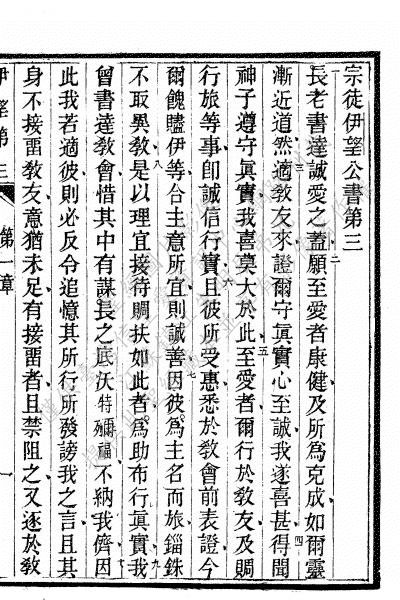 宗徒伊望公書第三
長老書達誠愛之蓋願至愛者康健及所爲克成如爾靈
漸近道然適教友來證爾守眞實心至誠我遂喜甚得聞
神子遵守眞實我喜莫大於此至愛者爾行於教友及賙
行旅等事卽誠信行實且彼所受惠悉於教會前表證今
爾餽贐伊等合主意所宜則誠善因彼爲主名而旅錙銖
不取異教是以理宜接待賙扶如此者爲助布行眞實我
曾書達教會惜其中有謀長之底沃特彌福不納我儕因
此我若適彼則必反令追憶其所行所發謗我之言且其
身不接雷教友意猶未足有接雷者且禁阻之又逐於教
伊望第三 第一章 一
二
三
四
五
六
七
八
九